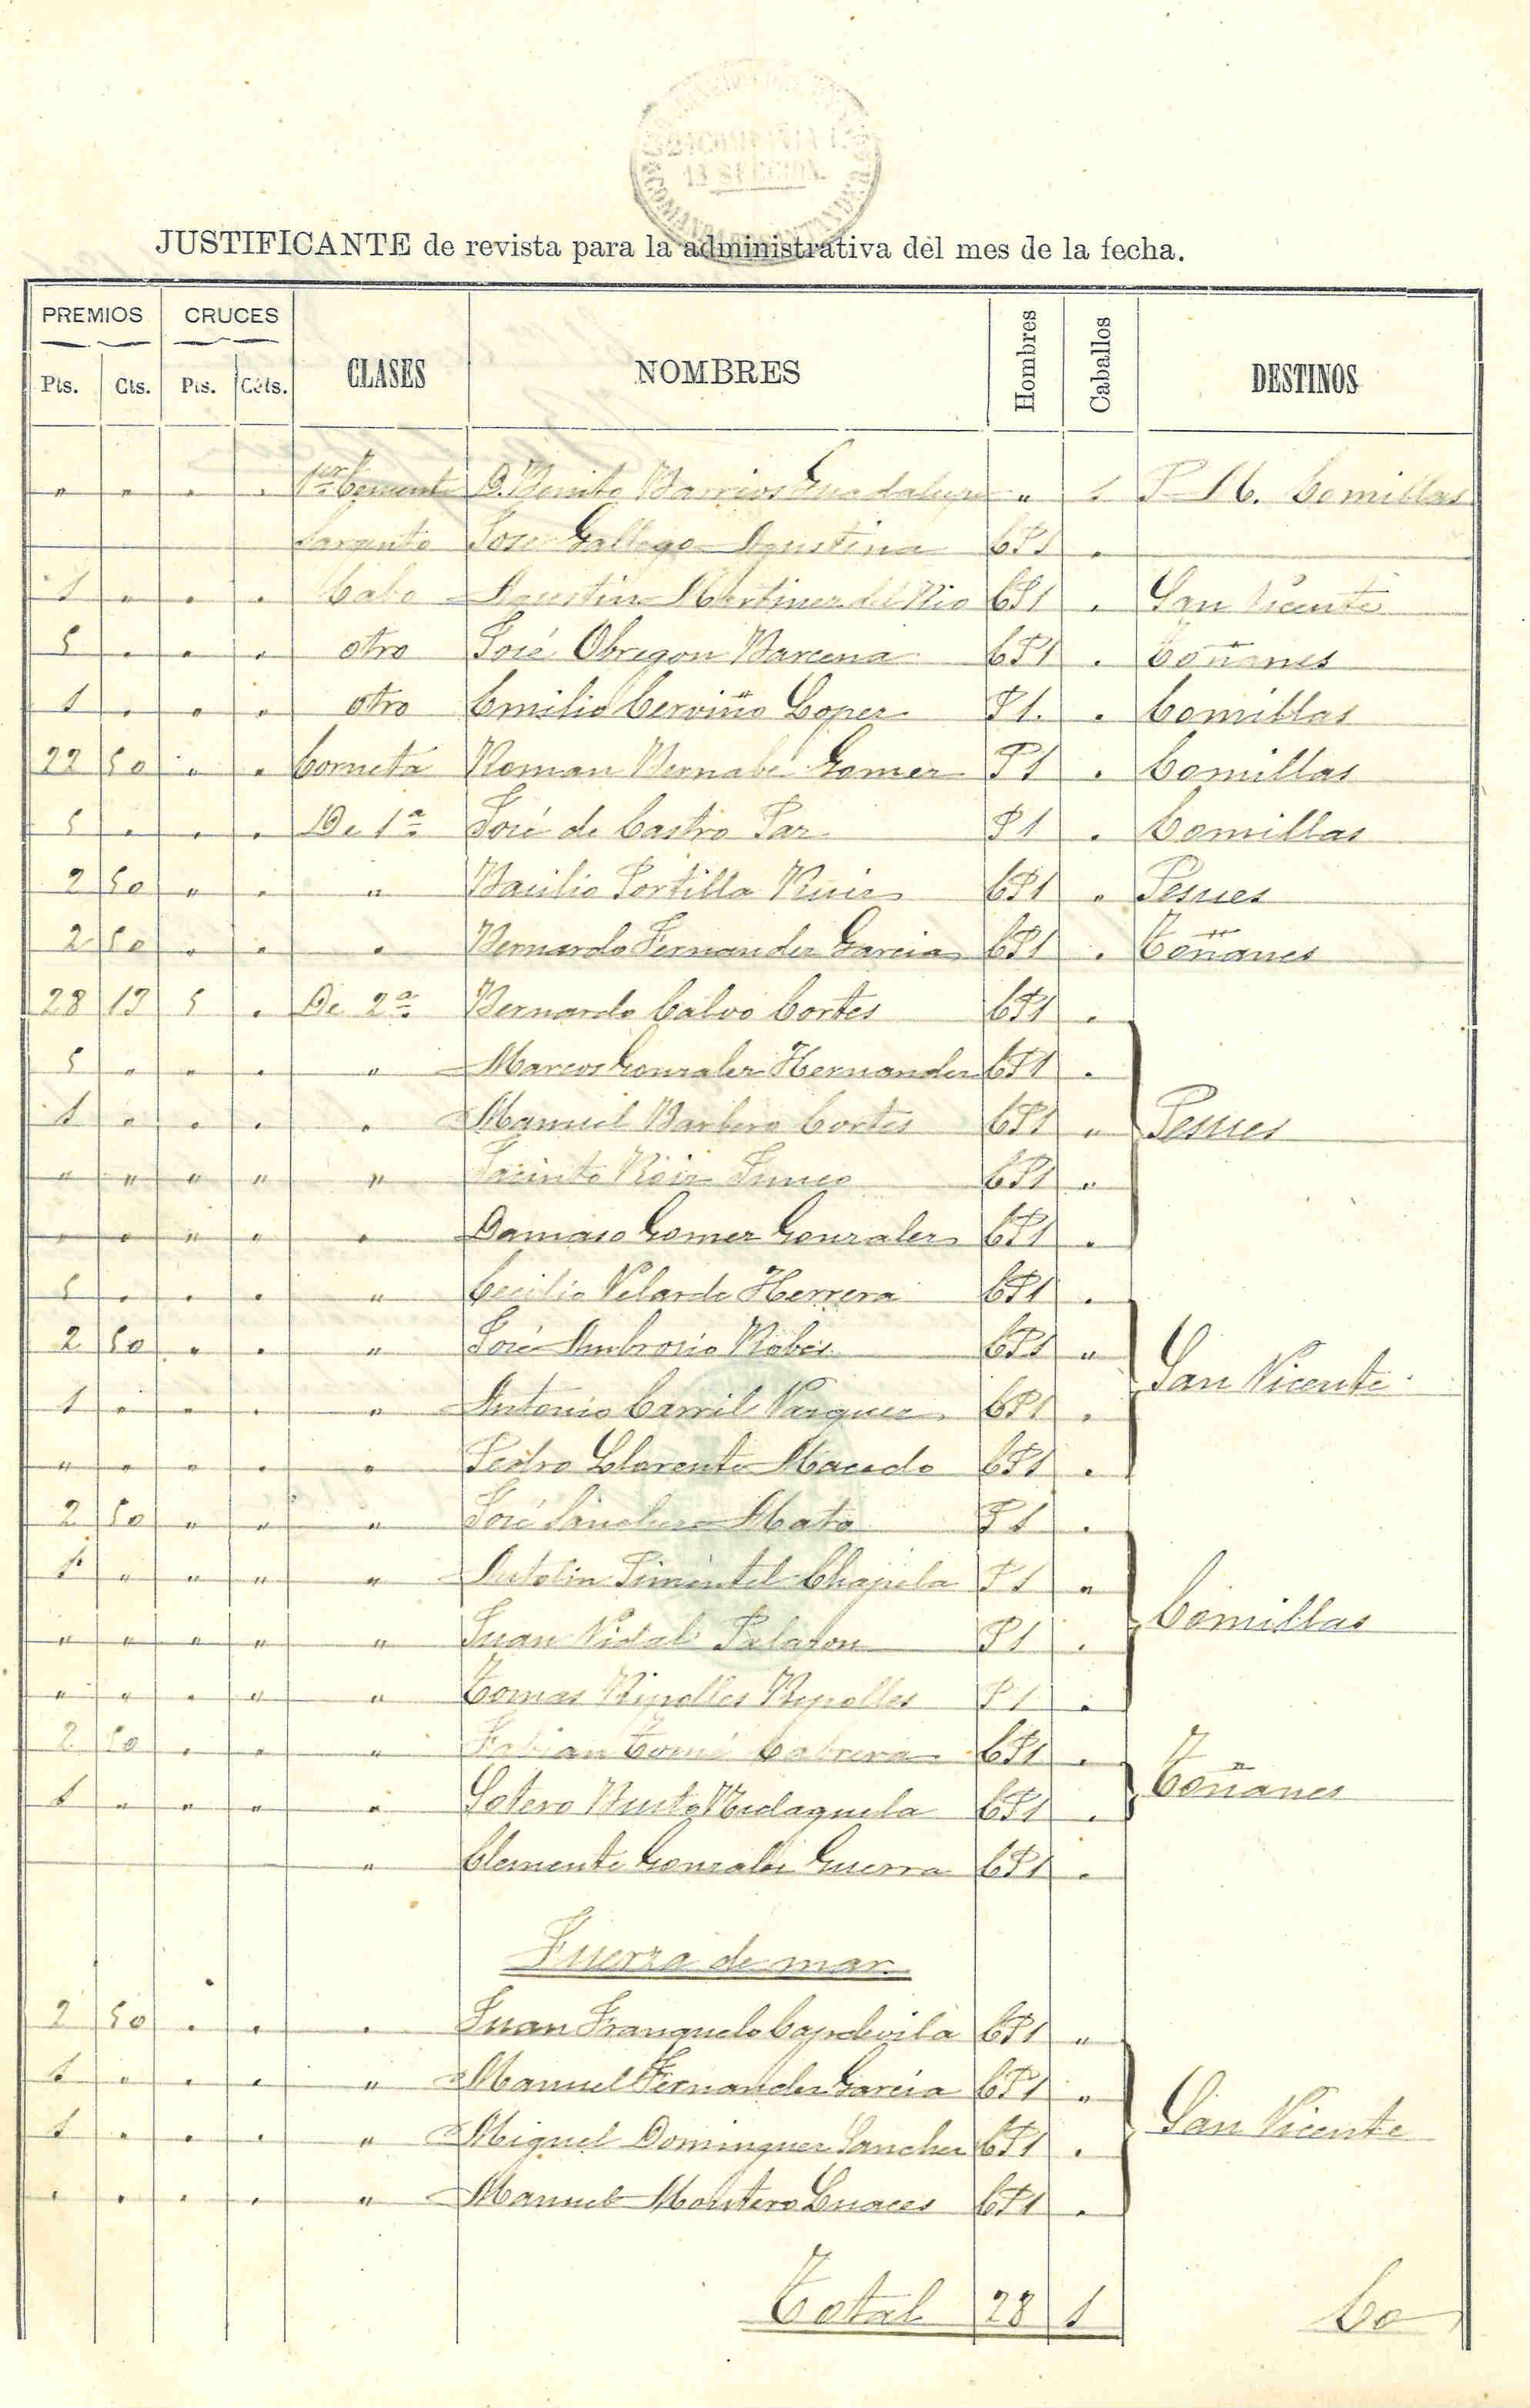 13 SECCION.
JUSTIFICANTE de revista para la administrativa del mes de la fecha.
PREMIOS CRUCES CLASES NOMBRES Hombres Caballos DESTINOS
Pts. Cts. Pts. Céts.
" " " " 1er Teniente D. Benito Barrios Guadalupe " 1 P. M. Comillas
Sargento José Gallego Agustina CP1 "
1 " " " Cabo Agustin Martinez del Rio CP1 " San Vicente
5 " " " otro José Obregon Barcena CP1 " Toñanes
1 " " " otro Emilio Cerviño Lopez P1. " Comillas
22 50 " " Corneta Roman Bernabé Gomez P1 " Comillas
5 " " " De 1ª José de Castro Paz P1 " Comillas
2 50 " " " Basilio Portilla Ruiz CP1 " Pesues
2 50 " " " Bernardo Fernandez Garcia CP1 " Toñanes
28 13 5 " De 2ª Bernardo Calvo Cortes CP1 "
5 " " " " Marcos Gonzalez Hernandez CP1 "
1 " " " " Manuel Barbero Cortes CP1 " Pesues
" " " " " Jacinto Roiz Junco CP1 "
" " " " " Damaso Gomez Gonzalez CP1 "
5 " " " " Cecilio Velarde Herrera CP1 "
2 50 " " " José Ambrosio Robes CP1 " San Vicente
1 " " " " Antonio Carril Vazquez CP1 "
" " " " " Pedro Llorente Macedo CP1 "
2 50 " " " José Sanchez Mata P1 "
1 " " " " Antolin Pimentel Chapela P1 "
" " " " " Juan Vidal Palazon P1 " Comillas
" " " " " Tomas Ripolles Ripolles P1 "
2 50 " " " Fabian Tomé Cabrera CP1 "
1 " " " " Sotero Busto CP1 " Toñanes
" Clemente Gonzalez Guerra CP1 "
Fuerza de mar
2 50 " " " Juan Franquelo Capdevila CP1 "
1 " " " " Manuel Fernandez Garcia CP1 "
1 " " " " Miguel Dominguez Sanchez CP1 " San Vicente
" " " " " Manuel Montero Luaces CP1 "
Total 28 1 Co